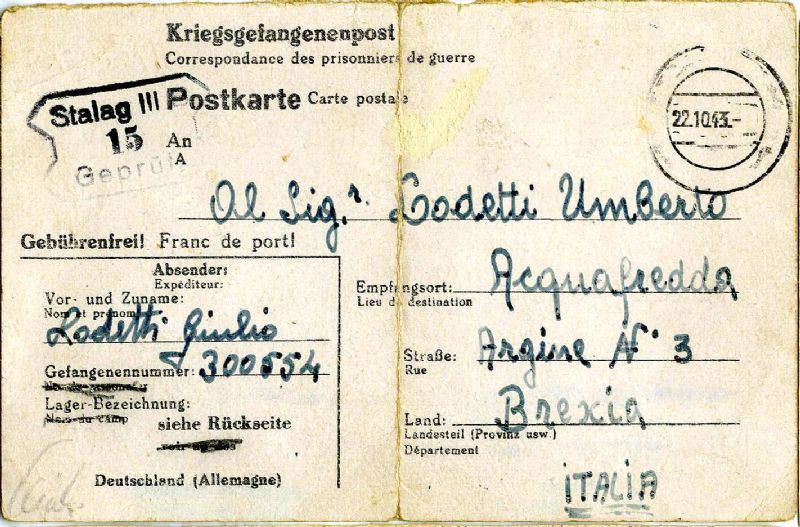 Kriegsgefangenenpost
Correspondance des prisonniers de guerre
Stalag III
15
Geprüft
Postkarte Carte postale
22.10.43.-
An
A
Al Sig.r Lodetti Umberto
Gebührenfrei! Franc de port!
Absender:
Expéditeur:
Vor- und Zuname:
Nom et prenom
Lodetti Giulio
Gefangenennummer: 300554
Lager-Bezeichnung:
siehe Rückseite
Deutschland (Allemagne)
Empfangsort: Acquafredda
Lieu de destination
Straße: Argine N° 3
Rue
Land: Brexia
Landesteil (Provinz usw.)
Département
ITALIA